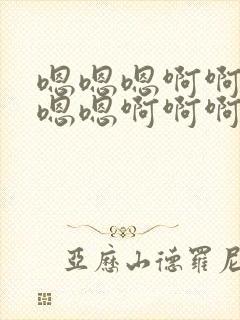 嗯嗯嗯啊啊
嗯嗯啊啊啊
亞歷山德羅尼